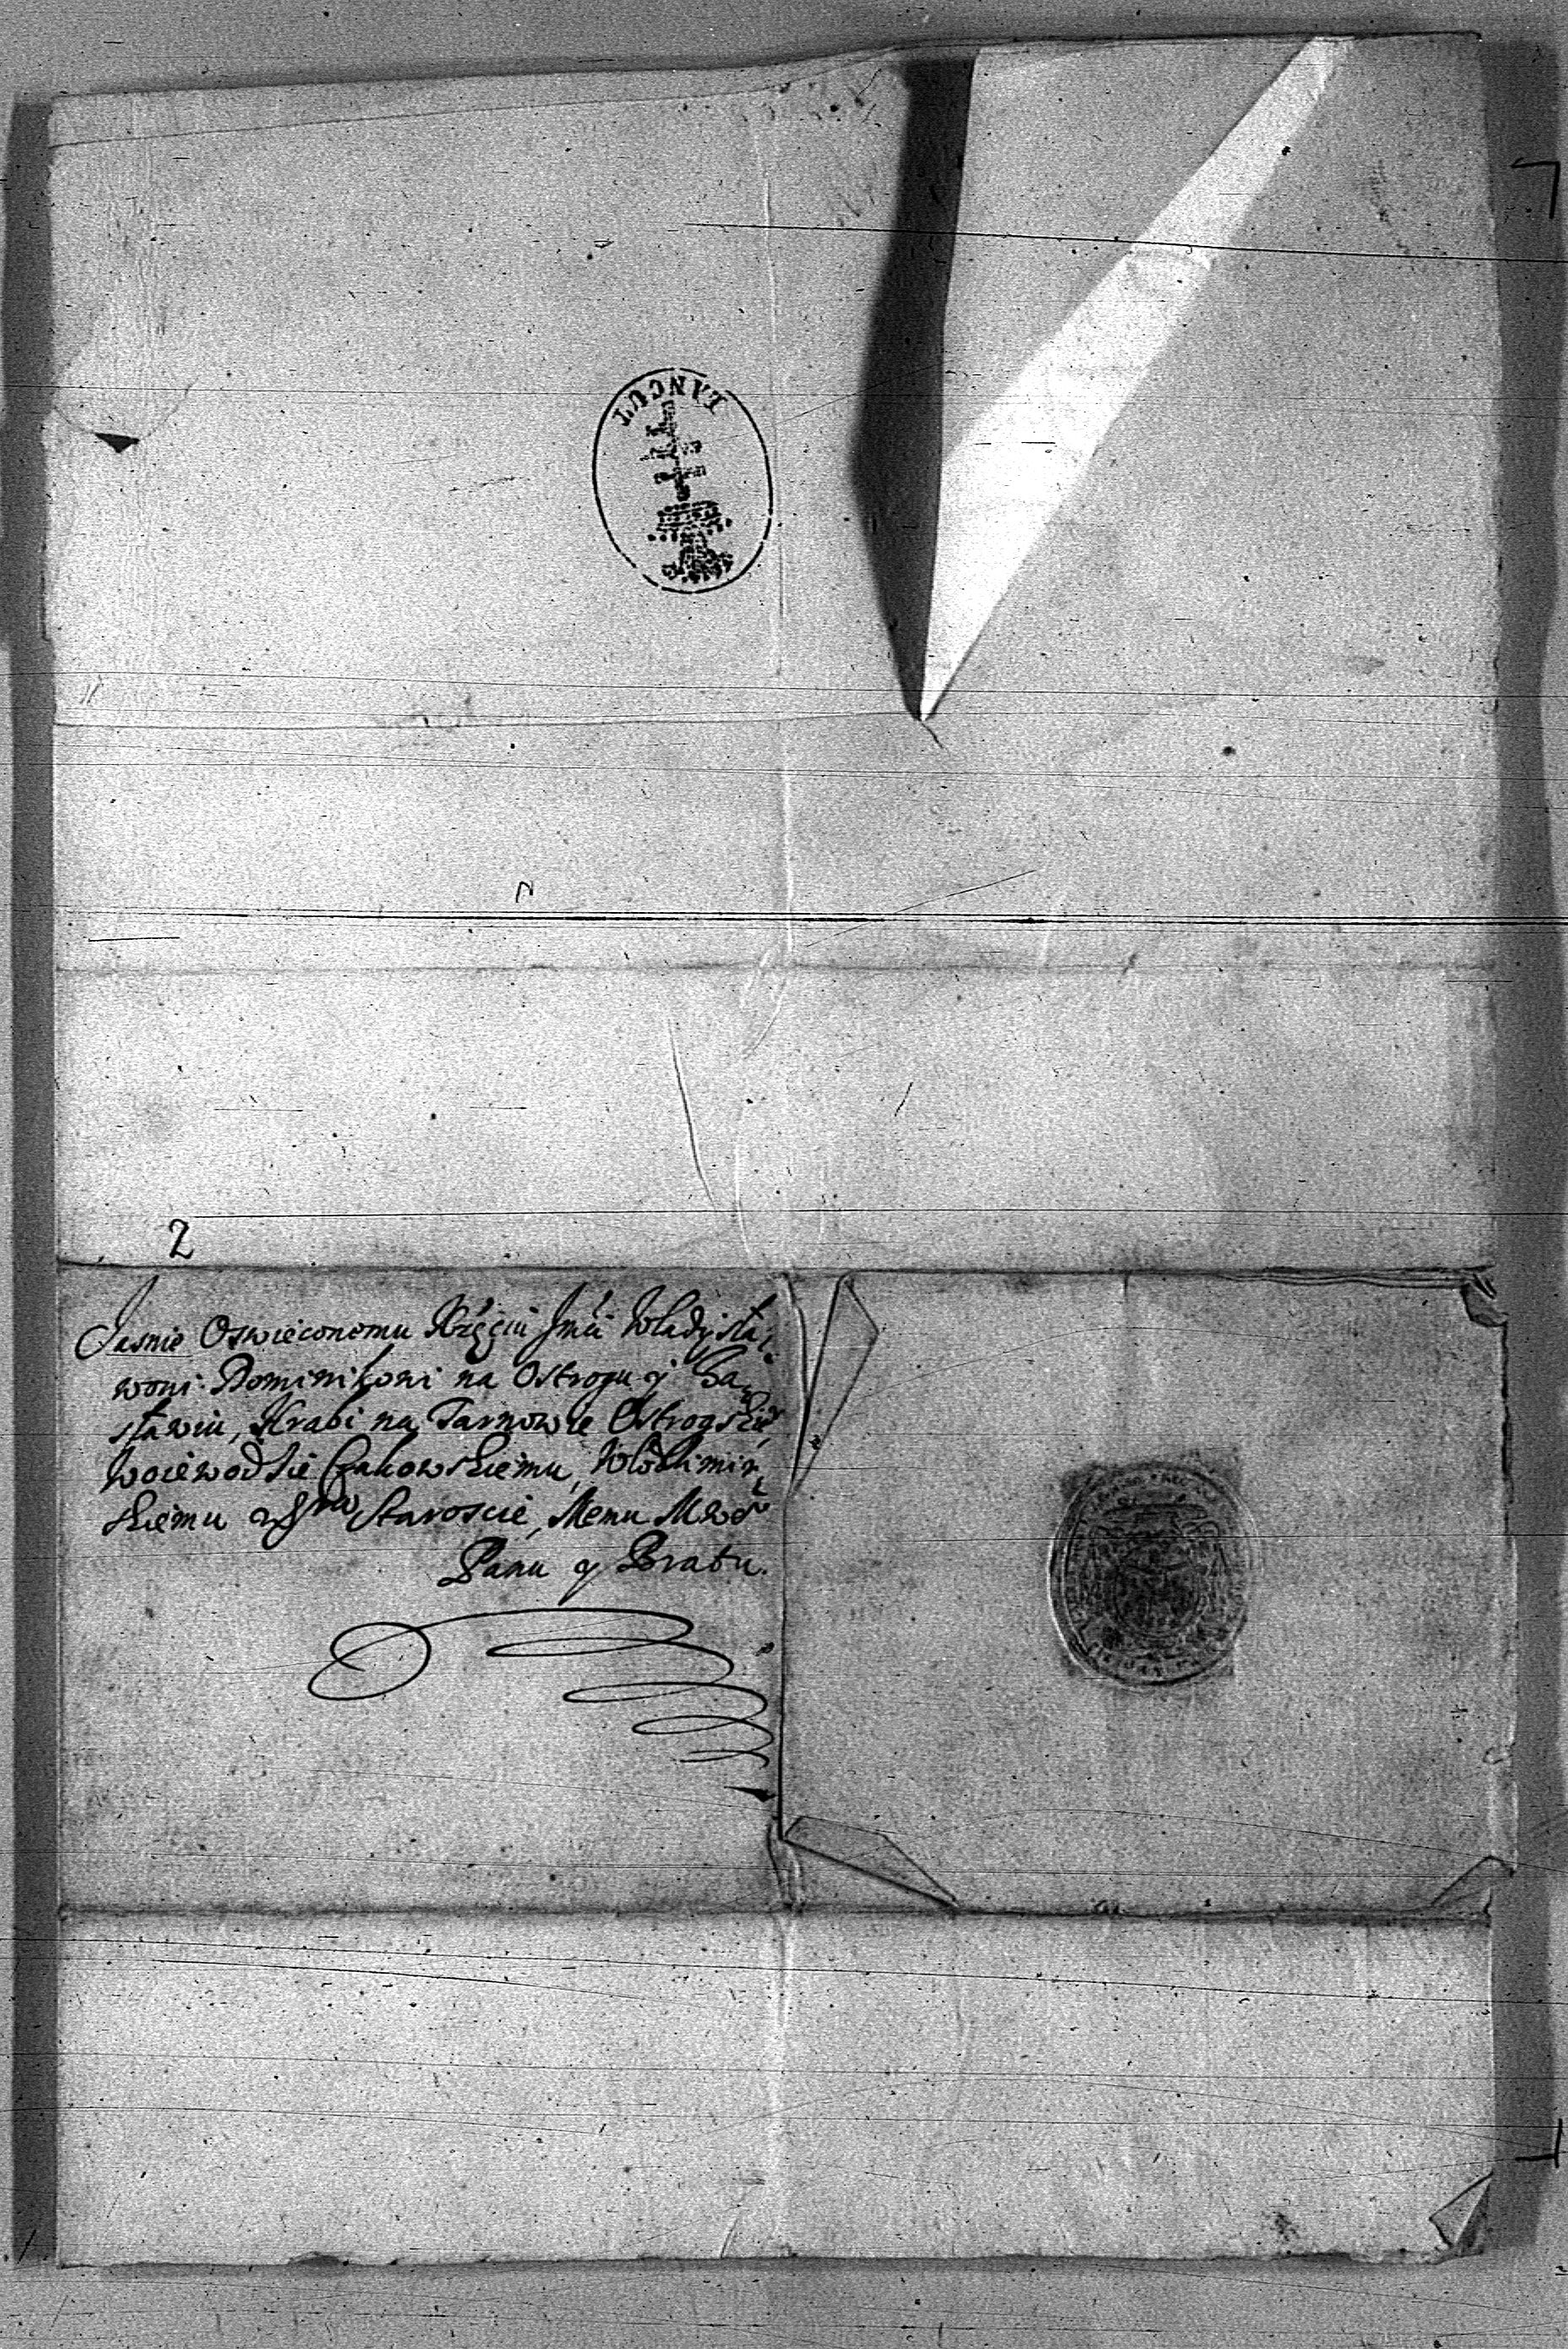 ŁAŃCUT
2
Jasnie Oswieconemu Xżęciu Jmći Władysła,
wowi Dominikowi na Ostrogu y Za,
sławiu, Hrabi na Tarnowie Ostrogskie,
Woiewodzie Crakowskiemu, Włodzimir,
skiemu Staroscie, Memu Mwe
Panu y Bratu.